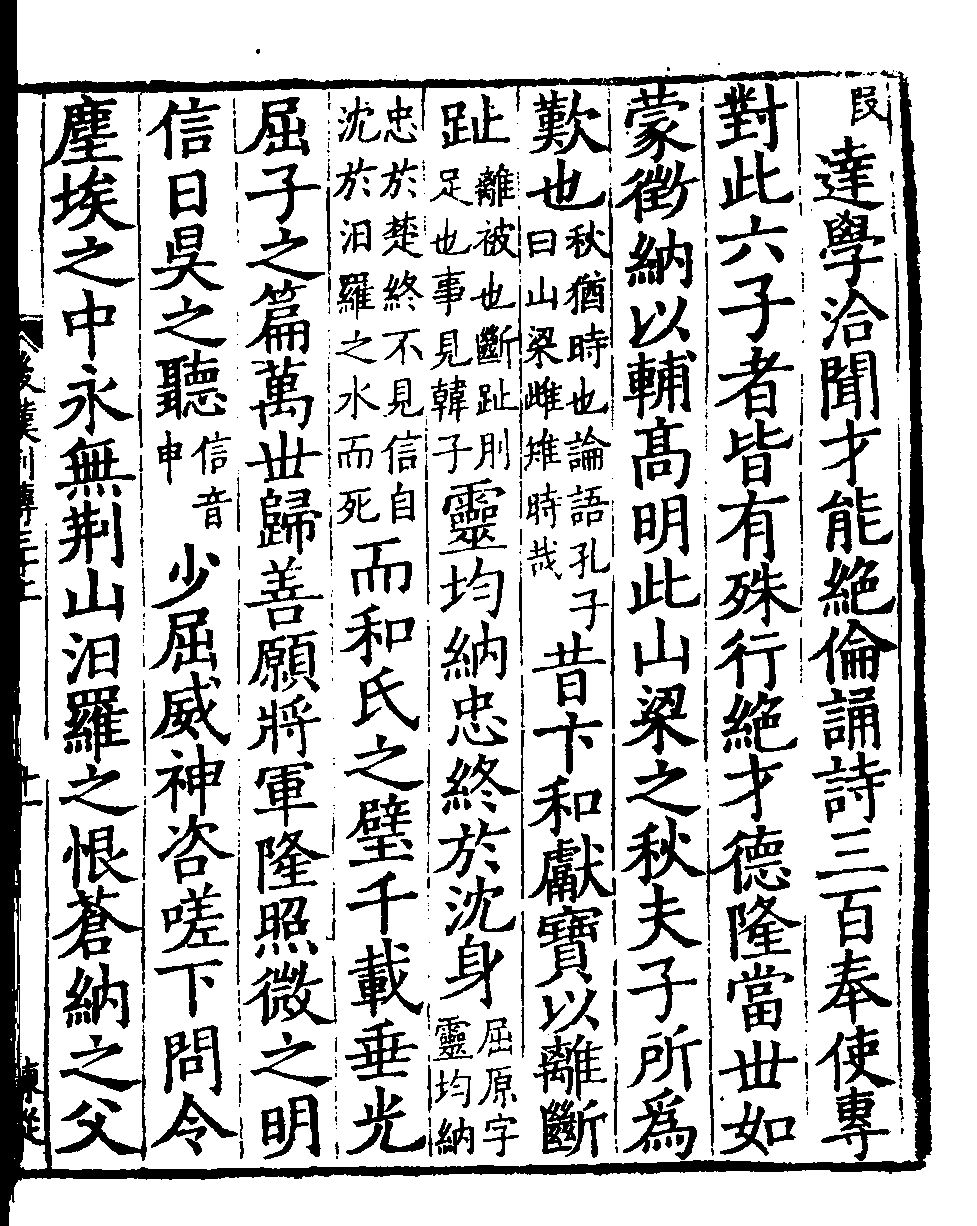 叚達學洽聞才能絶倫誦詩三百奉使專
對此六子者皆有殊行絶才德隆當丗如
蒙徵納以輔髙明此山梁之秋夫子所爲
歎也秋猶時也論語孔子曰山梁雌雉時哉昔卞和獻寶以離斷
趾離被也斷趾刖足也事見韓子靈均納忠終於沈身屈原字靈均納
忠於楚終不見信自沈於汨羅之水而死而和氏之璧千載垂光
屈子之篇萬丗歸善願將軍隆照微之明
信日昃之聽信音申少屈威神咨嗟下問令
塵埃之中永無荆山汨羅之恨蒼納之父